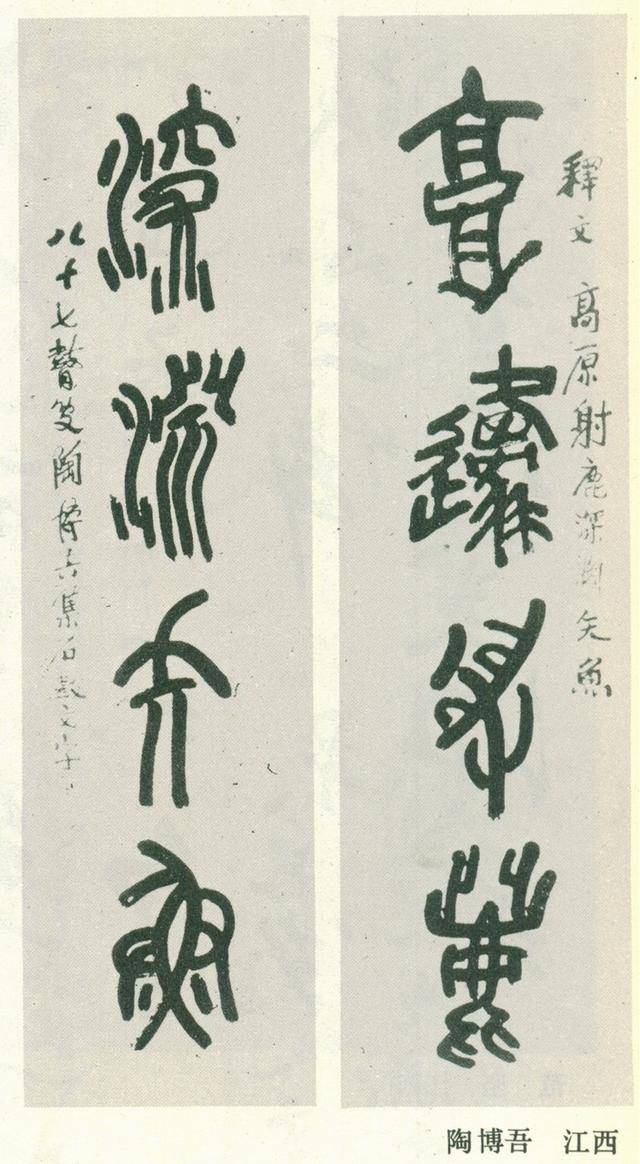 釋文 高原射鹿深淵矢魚
高邍射鹿
深淵矢魚
八十七瞽叟陶博吾集石鼓文字
陶博吾 江西